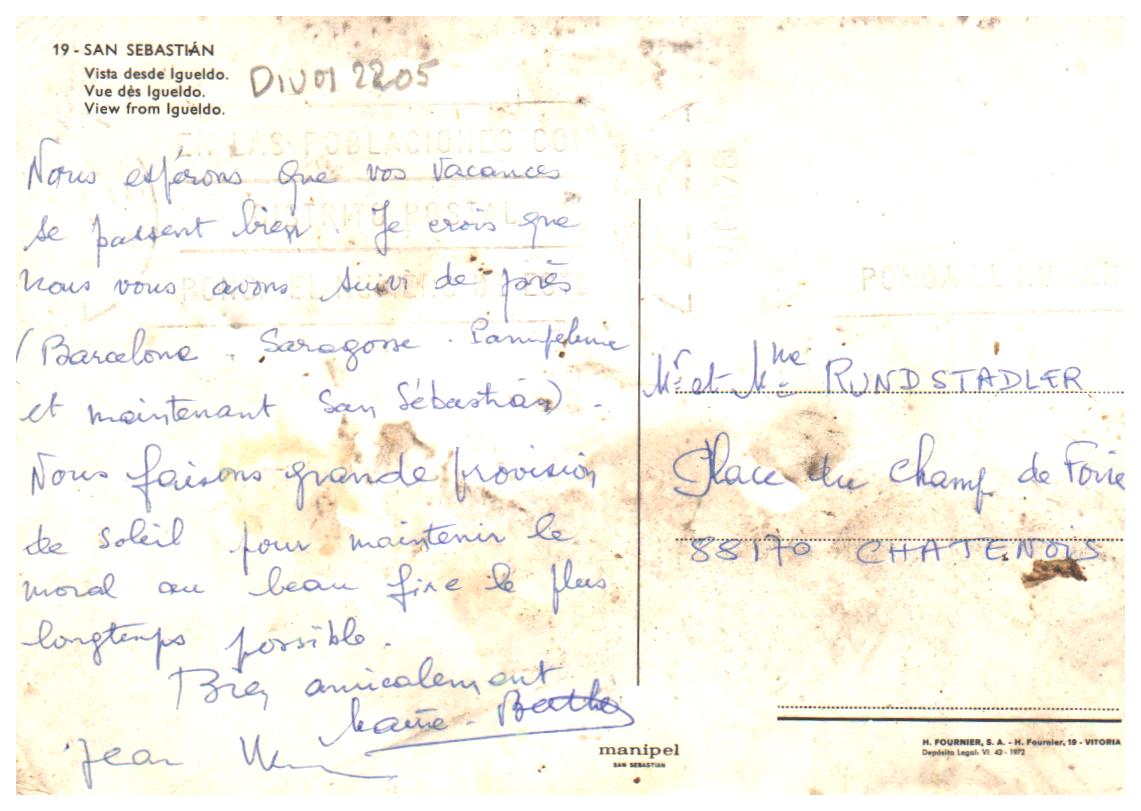 19 - SAN SEBASTIÁN
Vista desde Igueldo.
Vue dès Igueldo.
View from Igueldo.
DIV01 2205
EN LAS POBLACIONES CON
DISTRITO POSTAL
PONGA EL NUMERO
PONGA EL NUMER
Nous espérons que vos vacances
se passent bien. Je crois que
nous vous avons suivi de près
(Barcelone - Saragosse - Pampelune
et maintenant San Sébastián) -
Nous faisons grande provision
de soleil pour maintenir le
moral au beau fixe le plus
longtemps possible.
Bien amicalement
Berthe
Jean
Mr et Mme RUNDSTADLER
Place du Champ de Foire
88170 CHATENOIS
manipel
SAN SEBASTIAN
H. FOURNIER, S. A. - H. Fournier, 19 - VITORIA
Depósito Legal: VI. 43 - 1972